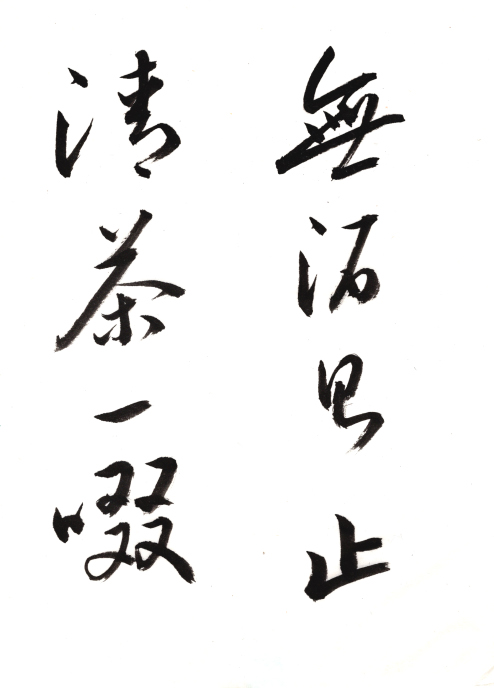 無酒見止
清茶一啜